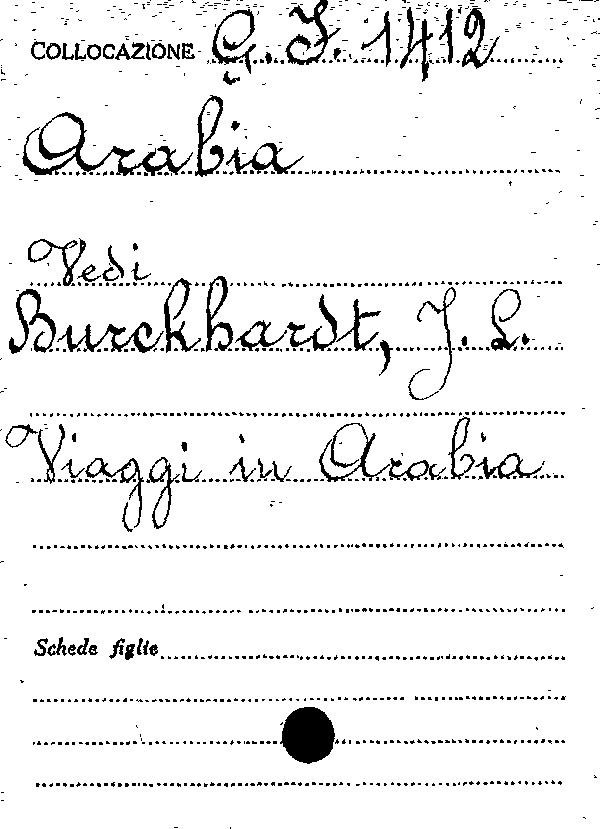 COLLOCAZIONE G. F. 1412
Arabia
Vedi
Burckhardt, J. L.
Viaggi in Arabia
Schede figlie